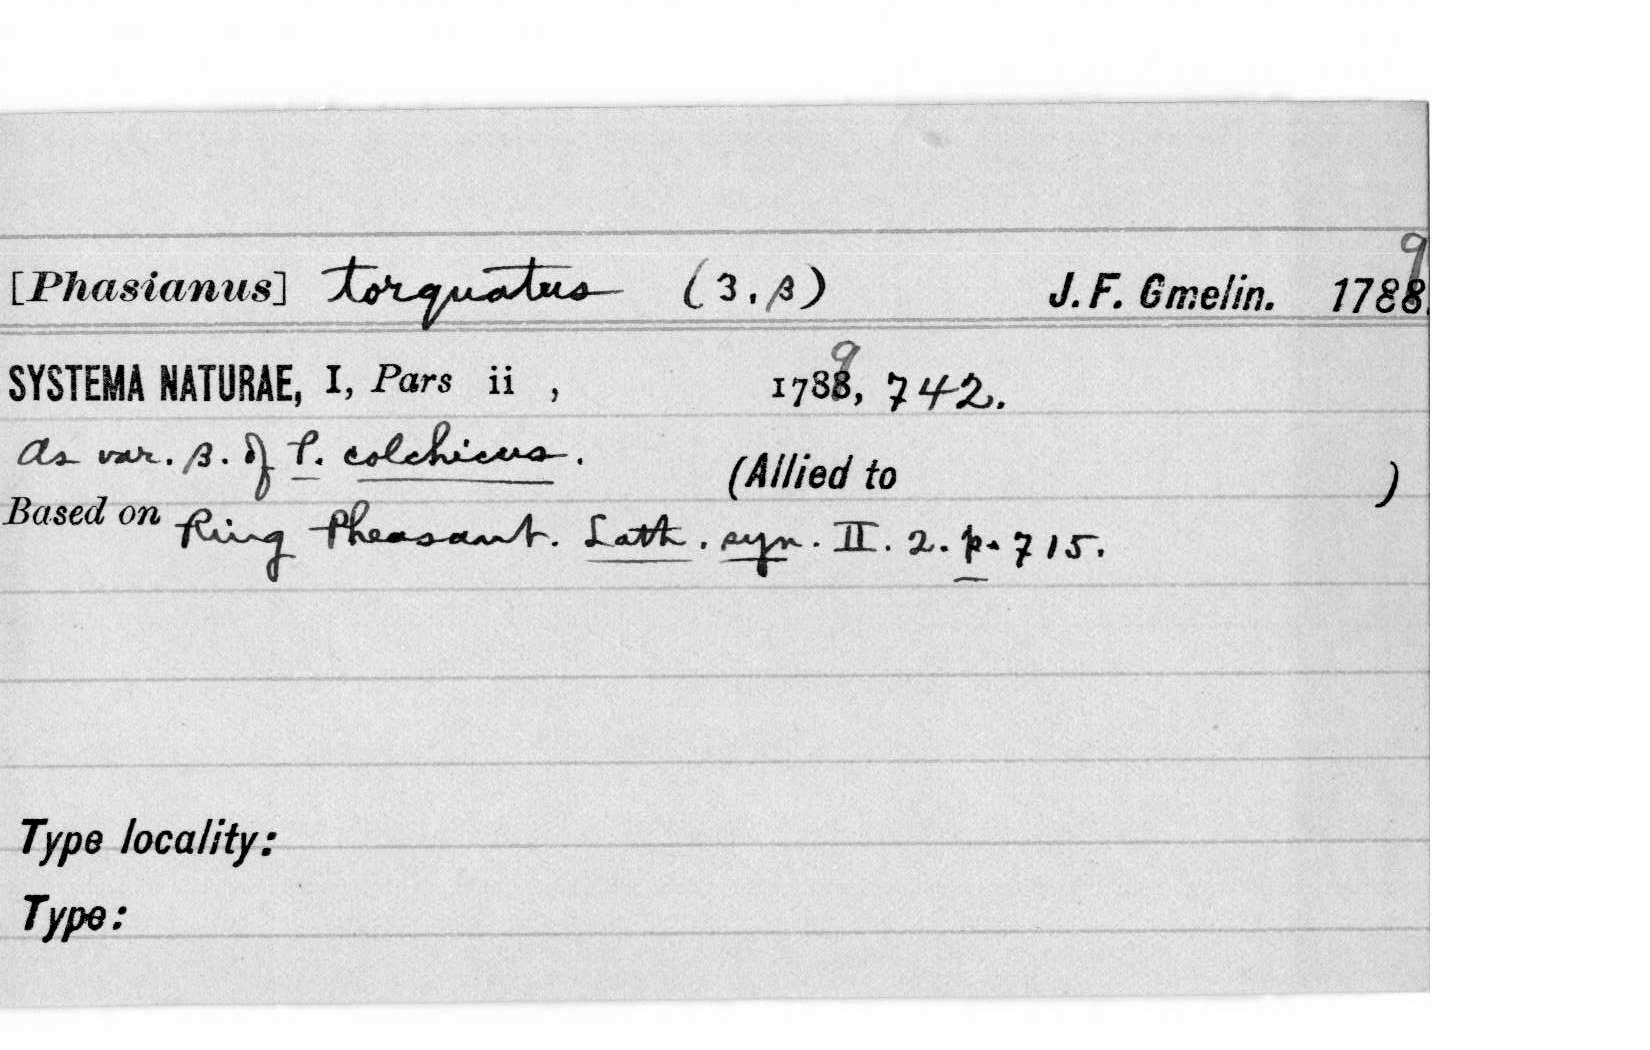 [Phasianus] torquatus (3, β) J. F. Gmelin. 1789
SYSTEMA NATURAE, I, Pars ii , 1789, 742.
As var. β. of P. colchicus. (Allied to )
Based on Ring Pheasant. Lath. syn. II. 2. p. 715.
Type locality:
Type: